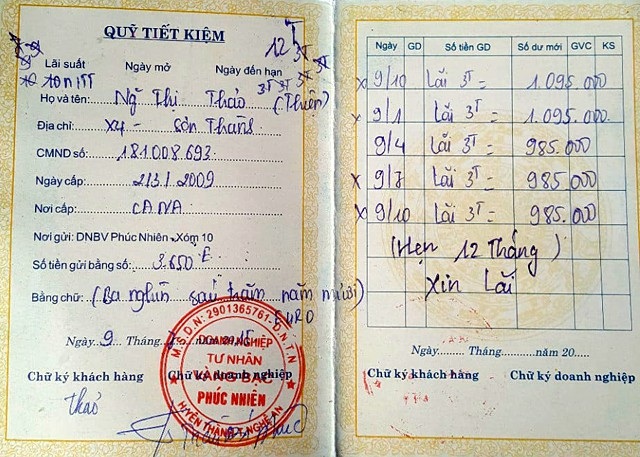 QUỸ TIẾT KIỆM
12T
Lãi suất Ngày mở Ngày đến hạn
3T 3T
Họ và tên: Ng̃ Thị Thảo (Thiện)
Địa chỉ: X4 - Sơn Thành
CMND số: 181.008.693
Ngày cấp: 2/3/2009
Nơi cấp: CANA
Nơi gửi: DNBV Phúc Nhiên - Xóm 10
Số tiền gửi bằng số: 3.650 E
Bằng chữ: (Ba nghìn sáu trăm năm mươi)
EURO
Ngày 9 Tháng năm 20
Chữ ký khách hàng Chữ ký doanh nghiệp
Thảo
M.S.D.N: 2901365761-D.N.T.N
DOANH NGHIỆP
TƯ NHÂN
VÀNG BẠC
PHÚC NHIÊN
HUYỆN YÊN THÀNH-T.NGHỆ AN
Ngày GD Số tiền GD Số dư mới GVC KS
x 9/10 Lãi 3T = 1.095.000
x 9/1 Lãi 3T = 1.095.000
9/4 Lãi 3T = 985.000
x 9/7 Lãi 3T = 985.000
x 9/10 Lãi 3T = 985.000
(Hẹn 12 Tháng)
Xin Lãi
Ngày......... Tháng...........năm 20.....
Chữ ký khách hàng Chữ ký doanh nghiệp